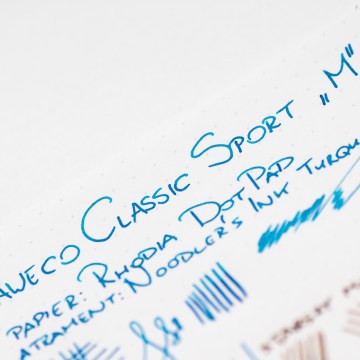 AWECO CLASSIC SPORT „M"
PAPIER: RHODIA DOTPAD
ATRAMENT: NOODLER'S INK TURQU